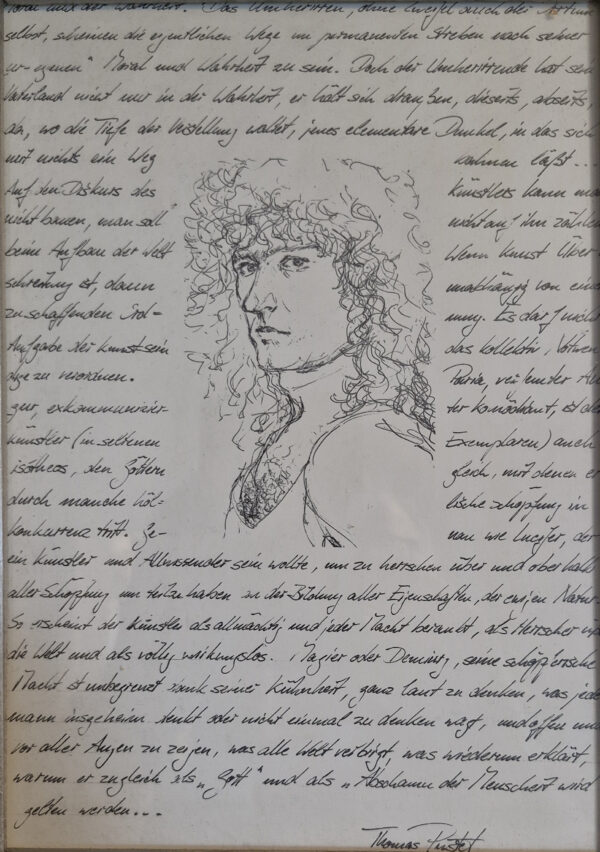 Moral und der Wahrheit. Das Umherirren, ohne Zweifel auch der Irrtum
selbst, scheinen die eigentlichen Wege im permanenten Streben nach seiner
"ur-eigenen" Moral und Wahrheit zu sein. Doch der Umherirrende hat sein
Vaterland nicht nur in der Wahrheit, er hält sich draußen, diesseits, abseits,
da, wo die Tiefe der Verstellung waltet, jenes elementare Dunkel, in das sich
mit nichts ein Weg bahnen läßt...
Auf den Diskurs des Künstlers kann man
nicht bauen, man soll nicht auf ihn zählen
beim Aufbau der Welt Wenn Kunst Über-
schreitung ist, dann unabhängig von einer
zu schaffenden Ord- nung. Es darf nicht
Aufgabe der Kunst sein das Kollektiv,
age zu verordnen. Paria,
gur, exkommunizier- ter Komödiant, ist der
Künstler (in seltenen Exemplaren) auch
isótheos, den Göttern gleich, mit denen er
durch manche höl- lische Schöpfung in
Konkurrenz tritt. Ge- nau wie Lucifer, der
ein Künstler und Allwissender sein wollte, um zu herrschen über und oberhalb
aller Schöpfung um teilzuhaben an der Bildung aller Eigenschaften, der ewigen Natur.
So erscheint der Künstler als allmächtig und jeder Macht beraubt, als Herrscher über
die Welt und als völlig wirkungslos. Magier oder Demiurg, seine schöpferische
Macht ist unbegrenzt dank seiner Kühnheit, ganz laut zu denken, was jeder-
mann insgeheim denkt oder nicht einmal zu denken wagt, und offen und
vor aller Augen zu zeigen, was alle Welt verbirgt, was wiederum erklärt,
warum er zugleich als „Gott“ und als „Abschaum der Menschheit wird
gelten werden...
Thomas